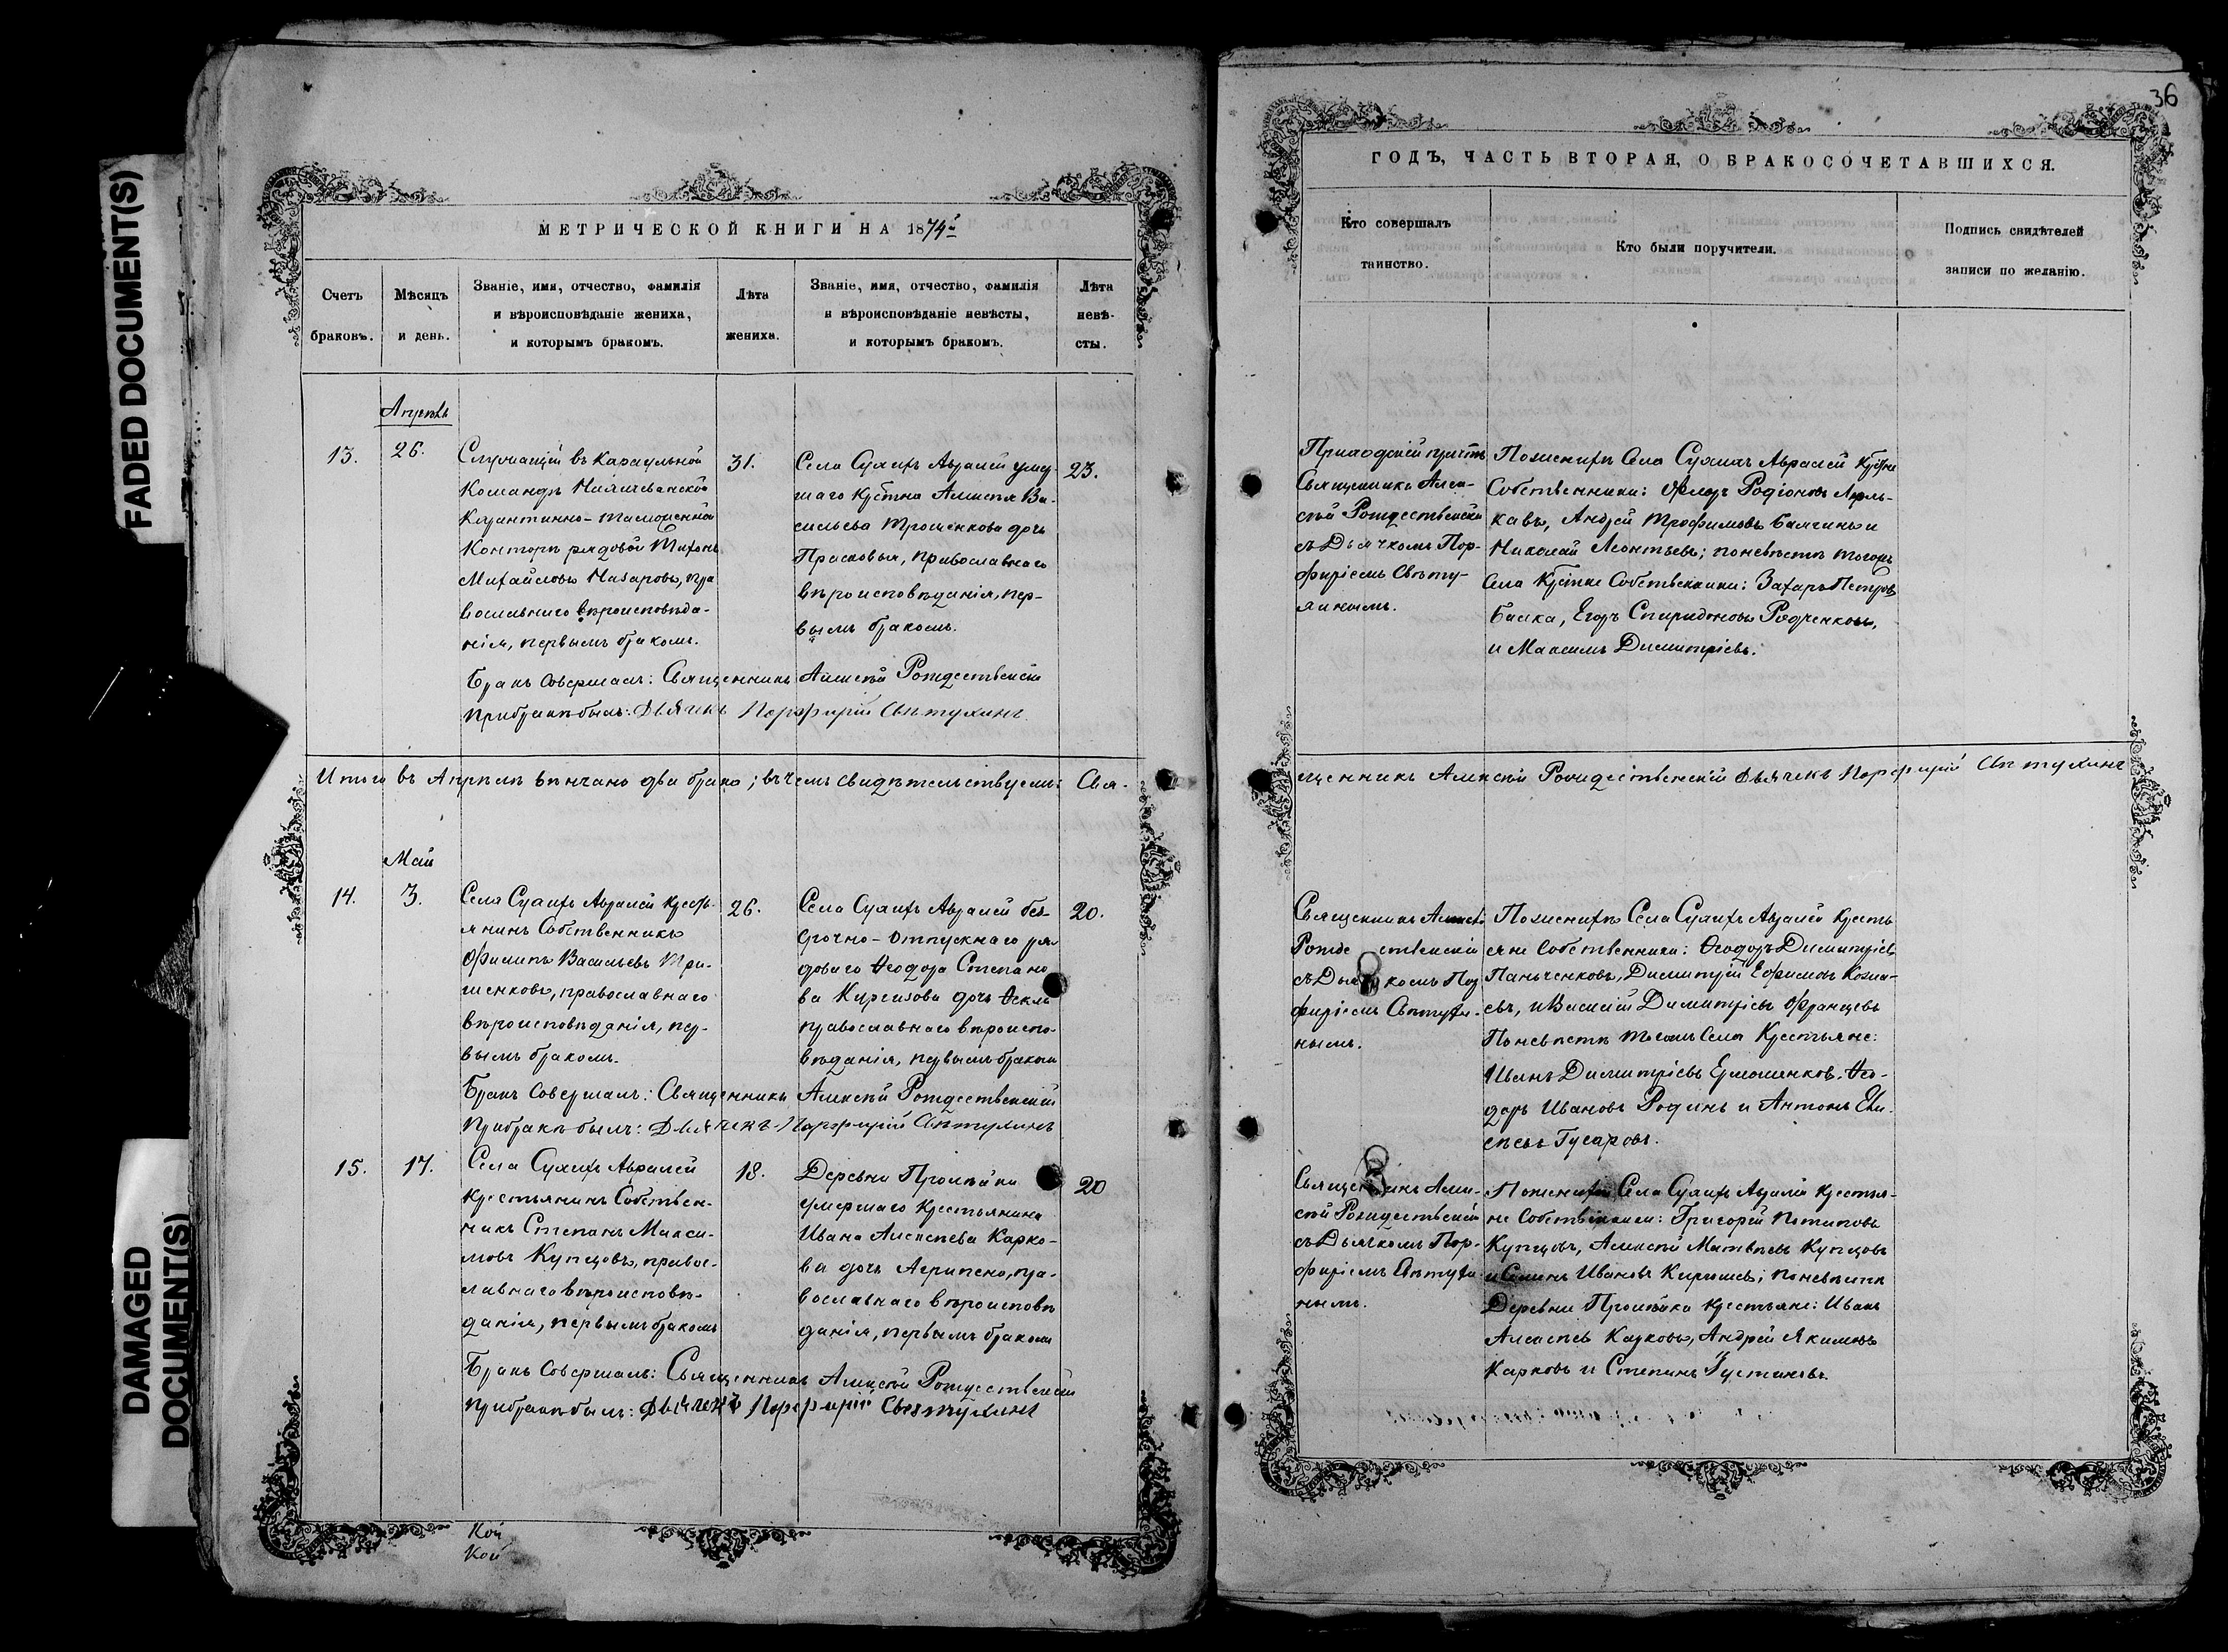 FADED DOCUMENT(S)
DAMAGED
DOCUMENT(S)
МЕТРИЧЕСКОЙ КНИГИ НА 1874й
Счетъ
браковъ.
Мѣсяцъ
и день.
Званіе, имя, отчество, фамилія
и вѣроисповѣданіе жениха,
и которымъ бракомъ.
Лѣта
жениха.
Званіе, имя, отчество, фамилія
и вѣроисповѣданіе невѣсты,
и которымъ бракомъ.
Лѣта
невѣ-
сты.
Апрѣль
13.
26.
Служащій въ Караульной
Командѣ
Карантинно-Таможенной
Конторы рядовой Тихонъ
Михайловъ Назаровъ, пра
вославнаго вѣроисповѣда-
нія, первымъ бракомъ.
31.
Села Сухихъ Аврамей умер
шаго Алексѣя Ва-
сильева Трошенкова дочь
Прасковья, православнаго
вѣроисповѣданія, пер-
вымъ бракомъ.
23.
Бракъ Совершалъ: Священникъ Алексѣй Рождественскій
При бракѣ былъ: Дьячекъ Порфирій
Итого въ Апрѣлѣ вѣнчано два брака; въ чемъ свидѣтельствуемъ: Свя-
Май
14.
3.
Села Сухихъ Аврамей кресть
янинъ Собственникъ
Филипъ Васильевъ Тро-
шенковъ, православнаго
вѣроисповѣданія, пер-
вымъ бракомъ.
26.
Села Сухихъ Аврамей без-
срочно-отпускнаго ря-
доваго Ѳеодора Степано
ва Киргизова дочь Ѳекла
православнаго вѣроиспо-
вѣданія, первымъ бракомъ
20.
Бракъ Совершалъ: Священникъ Алексѣй Рождественскій
При бракѣ былъ: Дьячекъ Порфирій
15.
17.
Села Сухихъ Аврамей
крестьянинъ Собствен-
никъ Степанъ Макси-
мовъ Купцовъ, правос-
лавнаго вѣроисповѣ-
данія, первымъ бракомъ
18.
Деревни
умершаго Крестьянина
Ивана Алексѣева Карко-
ва дочь Агрипена, пра-
вославнаго вѣроисповѣ
данія, первымъ бракомъ
20
Бракъ Совершалъ: Священникъ Алексѣй Рождественскій
При бракѣ былъ: Дьячекъ Порфирій
Кой
Кой
36
ГОДЪ, ЧАСТЬ ВТОРАЯ, О БРАКОСОЧЕТАВШИХСЯ.
Кто совершалъ
таинство.
Кто были поручители.
Подпись свидѣтелей
записи по желанію.
Приходскій
Священникъ Алек-
сѣй Рождественскій
съ Дьячкомъ Пор-
фиріемъ
По женихѣ Села Сухихъ Аврамей
Собственники: Флоръ Родіоновъ
Андрей Трофимовъ и
Николай Леонтьевъ; по невѣстѣ тогожъ
Села Собственники: Захаръ Петровъ
Байка, Егоръ Спиридоновъ Родченковъ,
и Максимъ Димитріевъ.
щенникъ Алексѣй Рождественскій Дьячекъ Порфирій
Священникъ Алексѣй
Рождественскій
съ Дьячкомъ Пор
фиріемъ
нымъ.
По женихѣ Села Сухихъ Аврамей Кресть
яне Собственники: Ѳеодоръ Димитріевъ
Паньченковъ, Димитрій Ефимовъ
и Василій Димитріевъ Францевъ
По невѣстѣ тогожъ Села Крестьяне:
Иванъ Димитріевъ Ермошенковъ, Ѳео-
доръ Ивановъ Родинъ и Антонъ Ели-
сѣевъ Гусаровъ.
Священникъ Алек-
сѣй Рождественскій
съ Дьячкомъ Пор-
фиріемъ
нымъ.
По женихѣ Села Сухихъ Аврамей Крестья-
не Собственники: Григорій Потаповъ
Купцовъ, Алексѣй Матвѣевъ Купцовъ
и Иванъ по невѣстѣ
Деревни крестьяне: Иванъ
Алексѣевъ Карковъ, Андрей Якимовъ
Карковъ и Степанъ